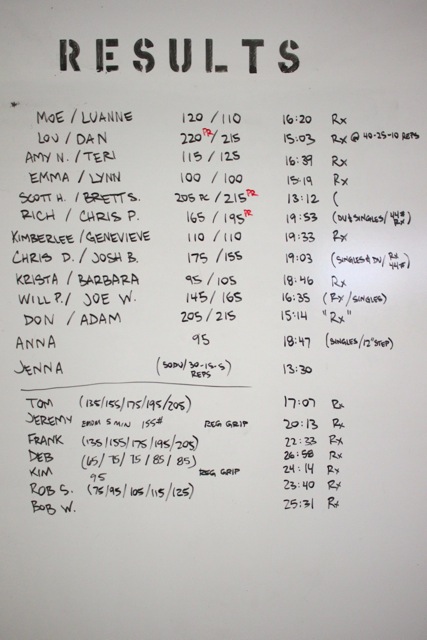 RESULTS
MOE / LUANNE 120 / 110 16:20 Rx
LOU / DAN 220 PR / 215 15:03 Rx @ 40-25-10 REPS
AMY N. / TERI 115 / 125 16:39 Rx
EMMA / LYNN 100 / 100 15:19 Rx
SCOTT H. / BRETT S. 205 PC / 215 PR 13:12 (
RICH / CHRIS P. 165 / 195 PR 19:53 (DU & SINGLES / 44# Rx)
KIMBERLEE / GENEVIEVE 110 / 110 19:33 Rx
CHRIS D. / JOSH B. 175 / 155 19:03 (SINGLES & DU / Rx 44#)
KRISTA / BARBARA 95 / 105 18:46 Rx
WILL P. / JOE W. 145 / 165 16:35 (Rx / SINGLES)
DON / ADAM 205 / 215 15:14 "Rx"
ANNA 95 18:47 (SINGLES / 12" STEP)
JENNA (50DU / 30-15-5 REPS) 13:30
TOM (135/155/175/195/205) 17:07 Rx
JEREMY EMOM 5 MIN 155# REG GRIP 20:13 Rx
FRANK (135/155/175/195/205) 22:33 Rx
DEB (65/75/75/85/85) 26:58 Rx
KIM 95 REG GRIP 24:14 Rx
ROB S. (75/95/105/115/125) 23:40 Rx
BOB W. 25:31 Rx